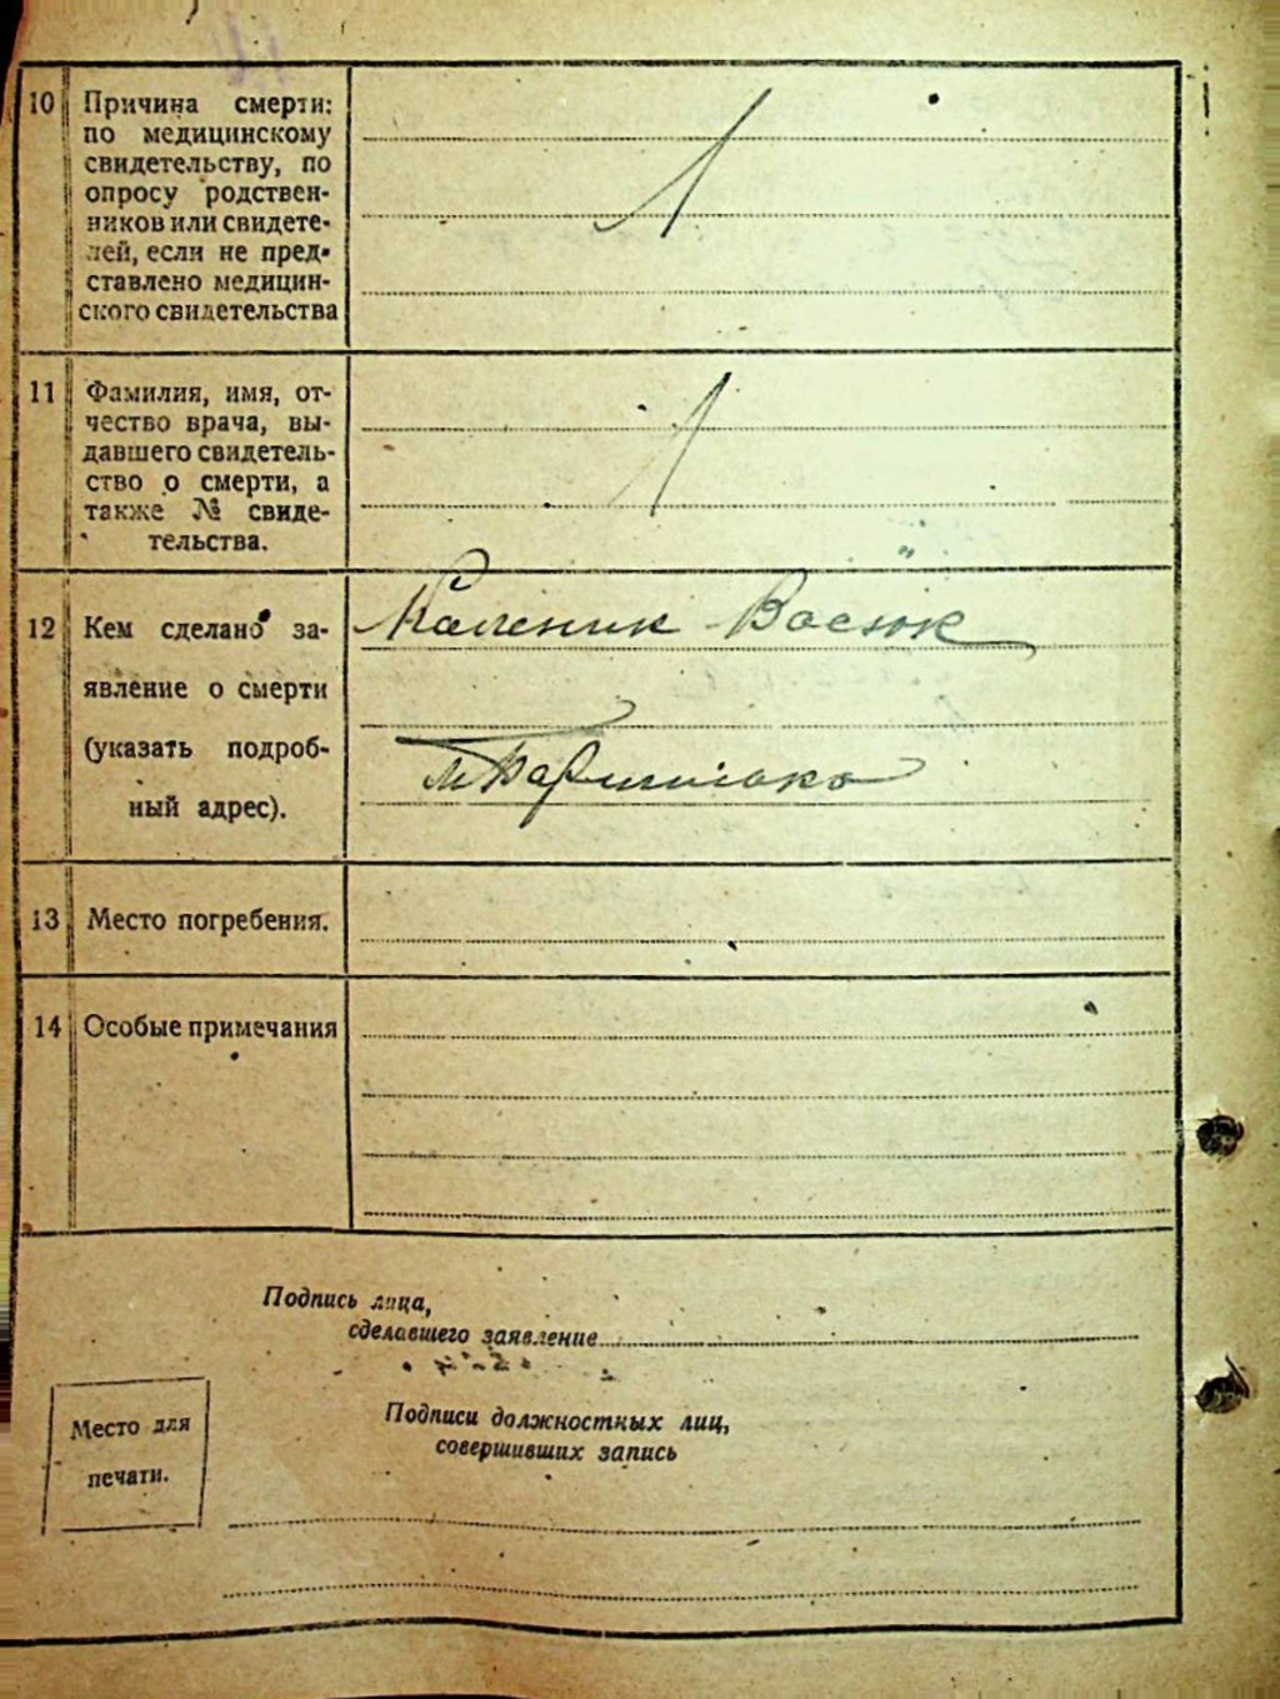 10 Причина смерти:
по медицинскому
свидетельству, по
опросу родствен-
ников или свидете-
лей, если не пред-
ставлено медицин-
ского свидетельства
11 Фамилия, имя, от-
чество врача, вы-
давшего свидетель-
ство о смерти, а
также № свиде-
тельства.
12 Кем сделано за-
явление о смерти
(указать подроб-
ный адрес).
Каленик Васюк
13 Место погребения.
14 Особые примечания
Подпись лица,
сделавшего заявление
Подписи должностных лиц,
совершивших запись
Место для
печати.